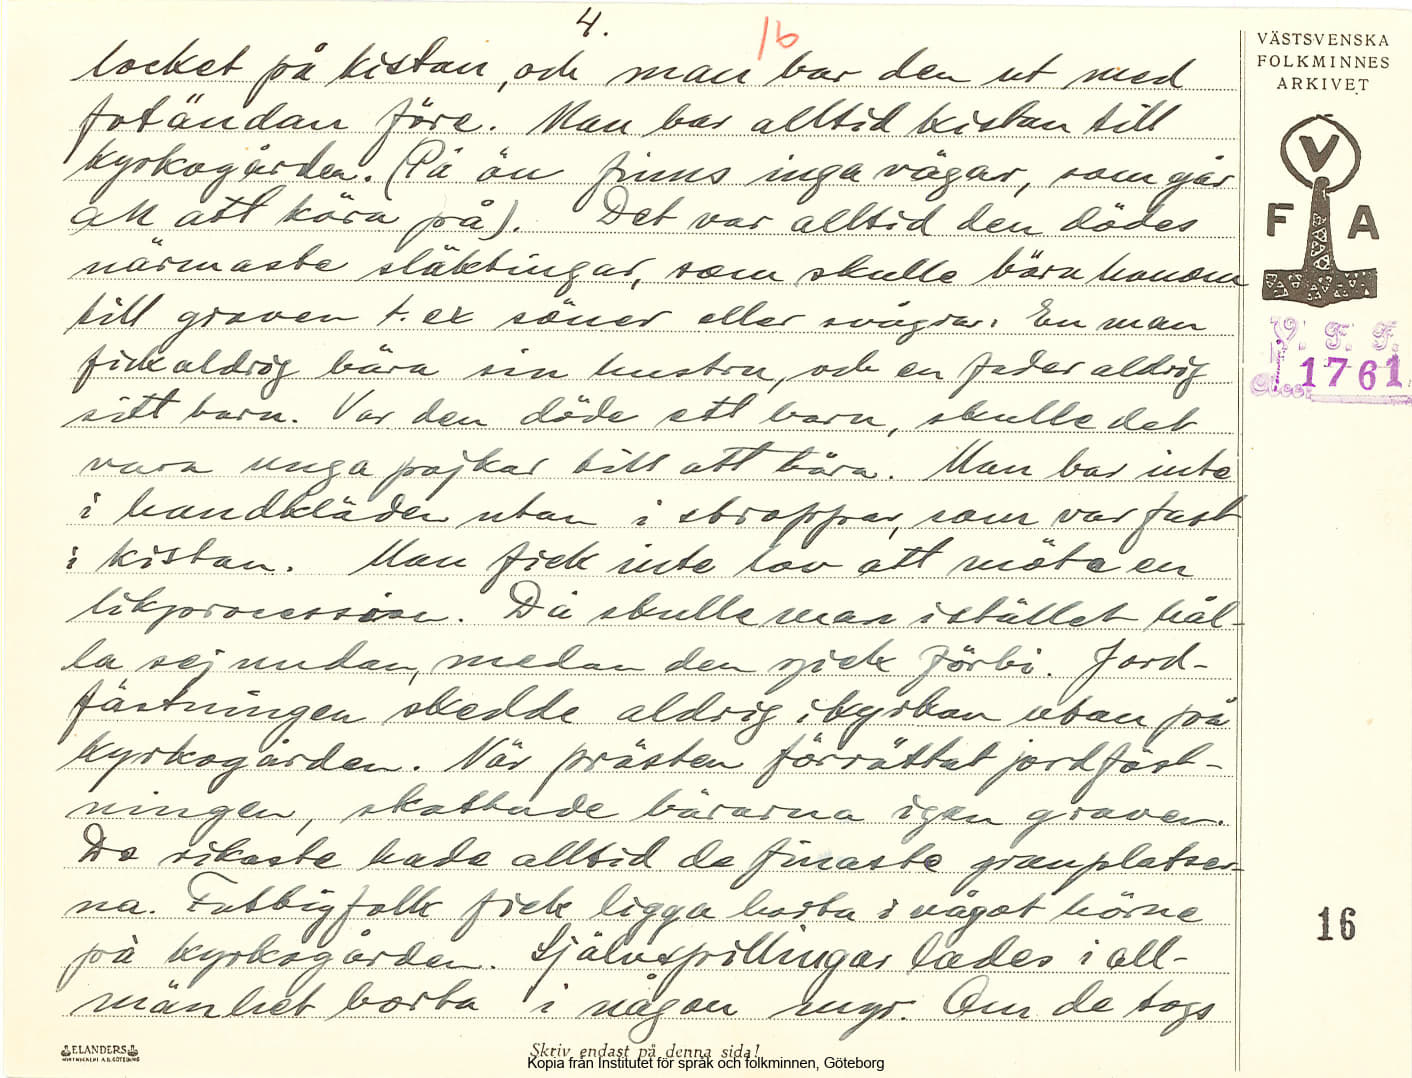 4.
16
locket på kistan, och man bar den ut med
fotändan före. Man bar alltid kistan till
kyrkogården. (På ön finns inga vägar, som går
att köra på). Det var alltid den dödes
närmaste släktingar, som skulle bära honom
till graven t. ex söner eller svågrar. En man
fick aldrig bära sin hustru, och en fader aldrig
sitt barn. Var den döde ett barn, skulle det
vara unga pojkar till att bära. Man bar inte
i handkläden utan i stroppar, som var fast
i kistan. Man fick inte lov att möta en
likprocession. Då skulle man istället hål-
la sej undan, medan den gick förbi. Jord-
fästningen skedde aldrig i kyrkan utan på
kyrkogården. När prästen förrättat jordfäst-
ningen, skottade bärarna igen graven.
De rikaste hade alltid de finaste gravplatser-
na. Fattigfolk fick ligga borta i något hörne
på kyrkogården. Självspillingar lades i all-
mänhet borta i någon myr. Om de togs
VÄSTSVENSKA
FOLKMINNES
ARKIVET
V
F A
V. F. F.
1761
16
ELANDERS
Skriv endast på denna sida!
Kopia från Institutet för språk och folkminnen, Göteborg